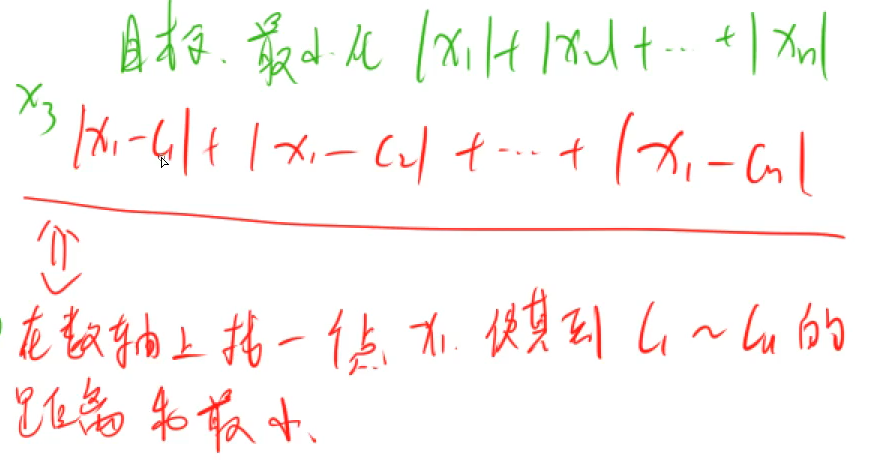 目标. 最小化 |x₁|+|x₂|+…+|xₙ|
x₃
|x₁-c₁|+|x₁-c₂|+…+|x₁-cₙ|
⇕
在数轴上找一个点 x₁. 使其到 c₁~cₙ 的
距离和最小.